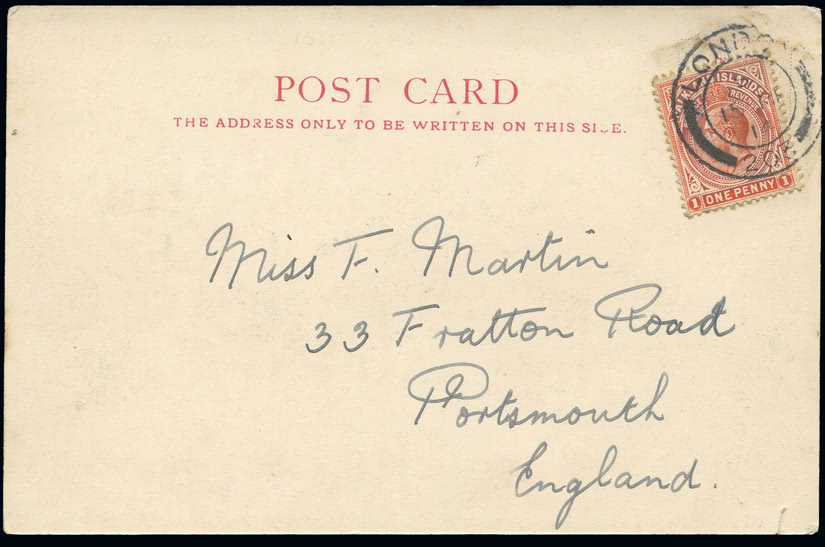 POST CARD
THE ADDRESS ONLY TO BE WRITTEN ON THIS SIDE.
LONDO
ISLANDS
REVENUE
15
1
1 ONE PENNY 1
Miss F. Martin
33 Fratton Road
Portsmouth
England.